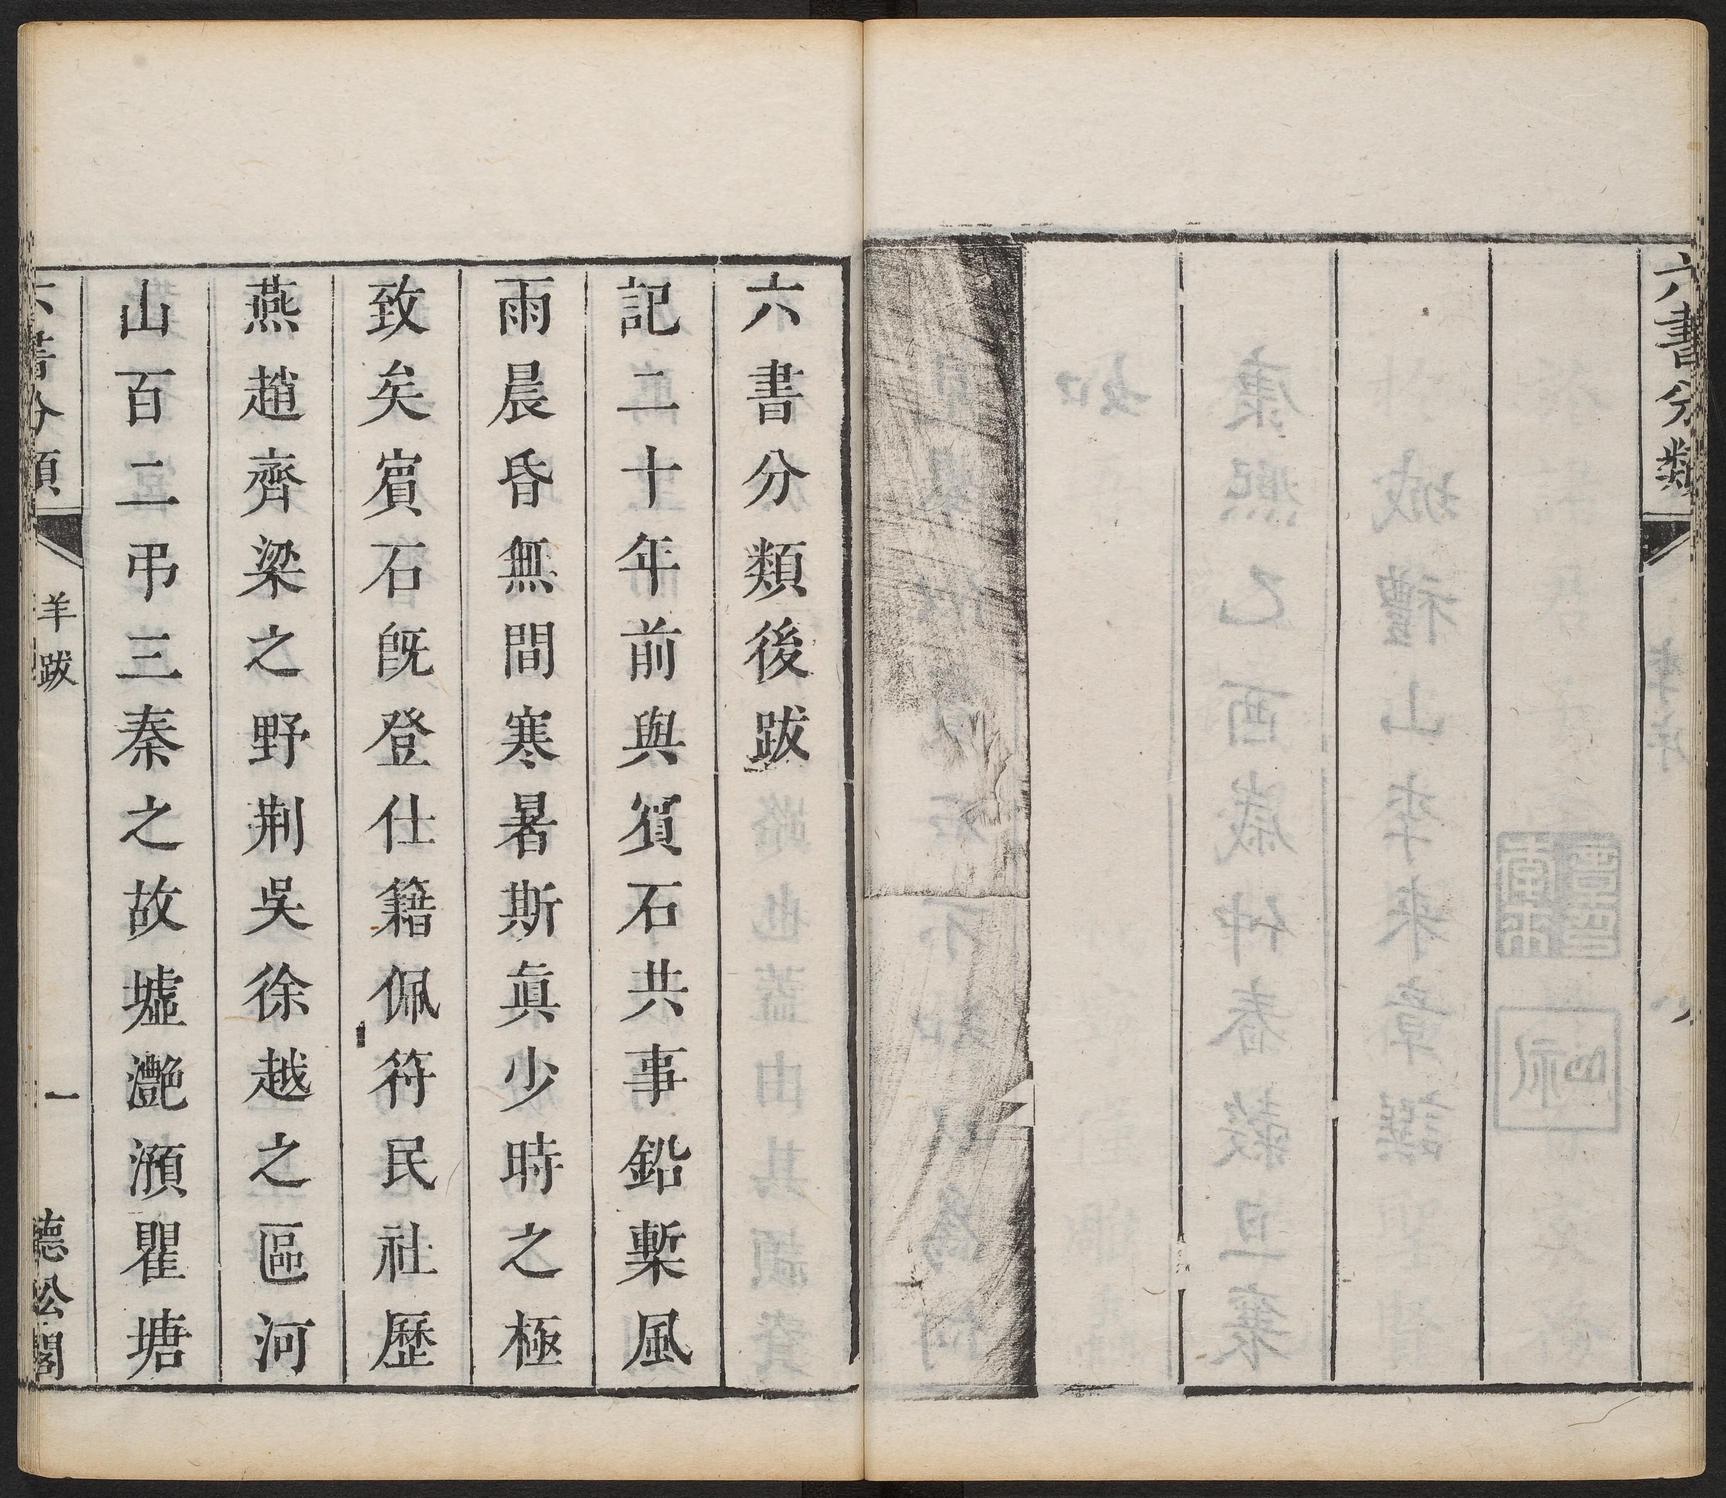 六書分類
六書分類後跋
記二十年前與賓石共事鉛槧風
雨晨昏無間寒暑斯眞少時之極
致矣賓石旣登仕籍佩符民社歷
燕趙齊梁之野荆吳徐越之區河
山百二弔三秦之故墟灔澦瞿塘
六書分類
羊跋
一
聽松閣